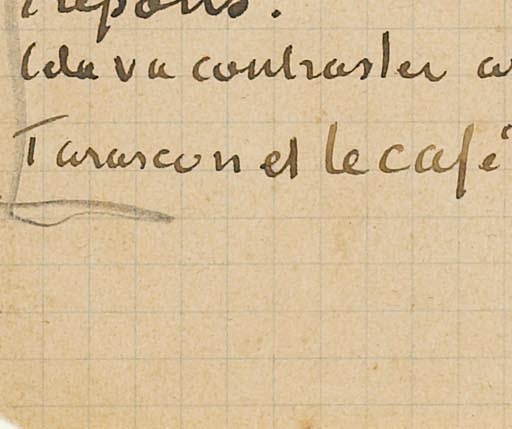 repons.
Cela va contraster av
Tarascon et le café